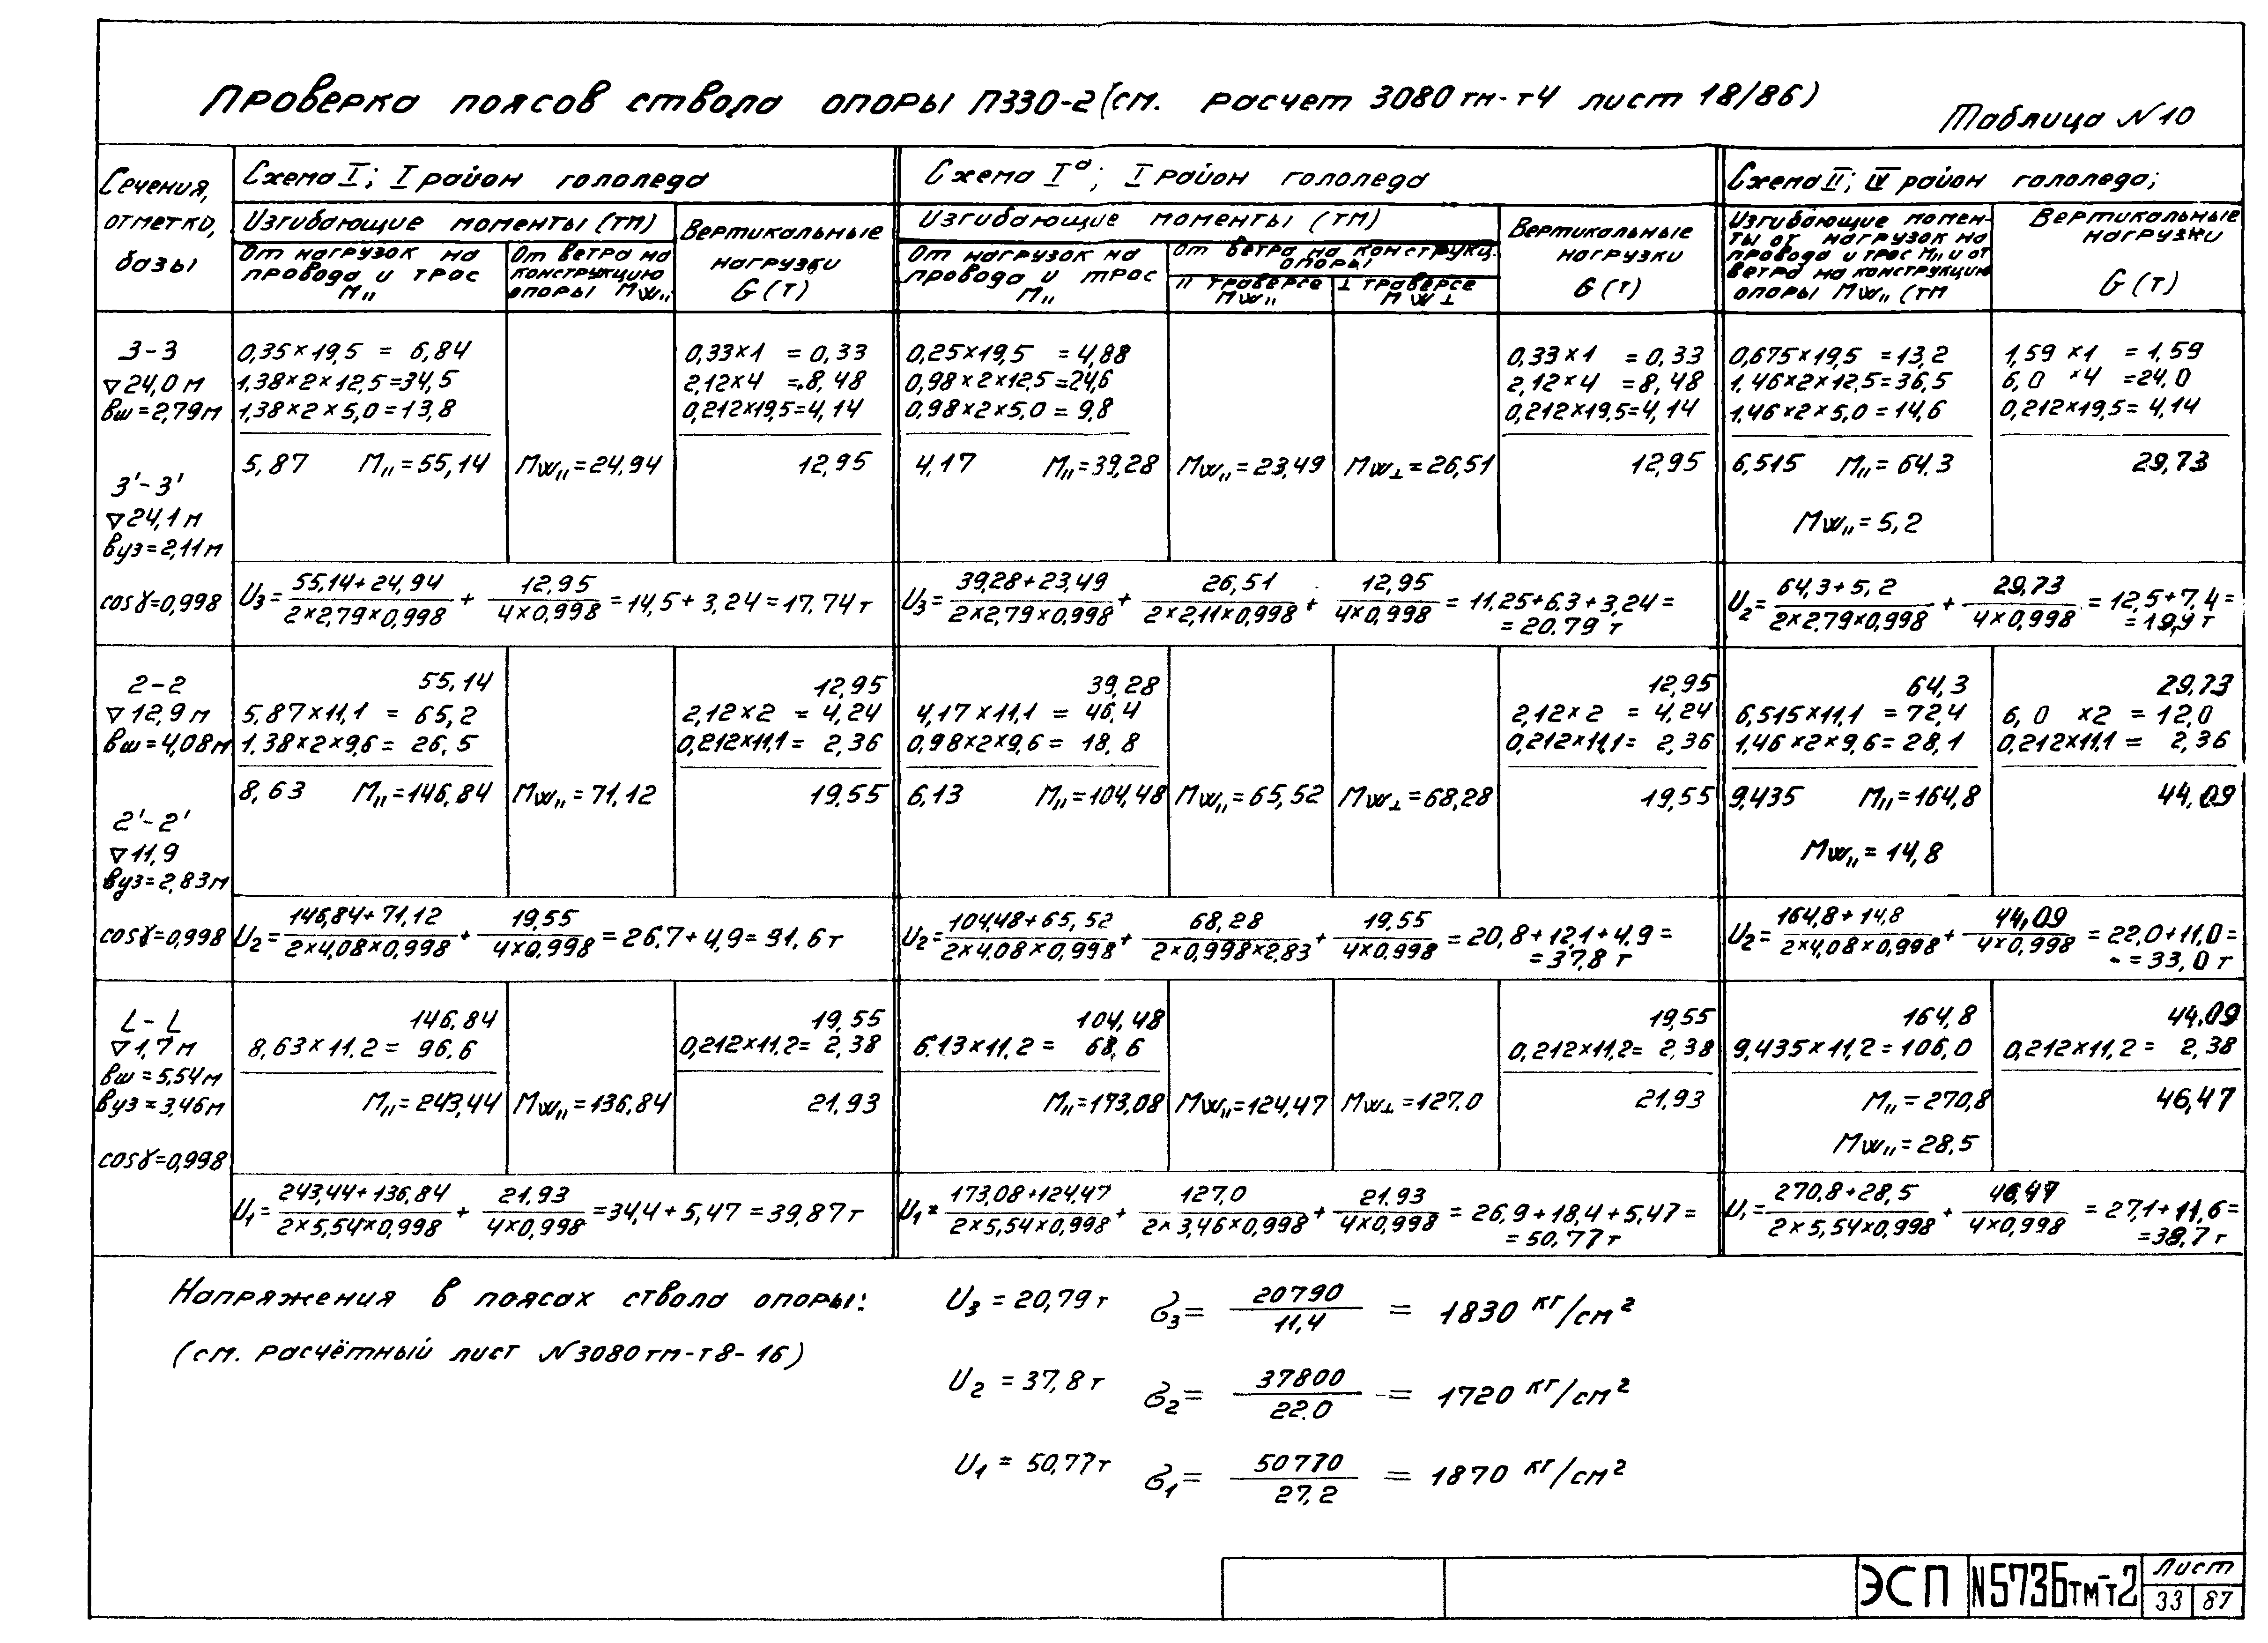 Проверка поясов ствола опоры П330-2 (см. расчет 3080тм-т4 лист 18/86)
Таблица N10
Сечения, отметка, базы
Схема I; I район гололеда
Изгибающие моменты (тм)
От нагрузок на провода и трос M||
От ветра на конструкцию опоры MW||
Вертикальные нагрузки G (т)
Схема Iа; I район гололеда
Изгибающие моменты (тм)
От нагрузок на провода и трос M||
От ветра на конструкц. опоры
|| траверсе MW||
⊥ траверсе MW⊥
Вертикальные нагрузки G (т)
Схема II; IV район гололеда;
Изгибающие момен-
ты от нагрузок на
провода и трос M|| и от
ветра на конструкцию
опоры MW|| (тм
Вертикальные нагрузки G (т)
3-3
▽24,0 м
вш=2,79м
3'-3'
▽24,1 м
вуз=2,11м
cosγ=0,998
0,35×19,5 = 6,84
1,38×2×12,5=34,5
1,38×2×5,0=13,8
5,87 M||=55,14
MW||=24,94
0,33×1 = 0,33
2,12×4 = 8,48
0,212×19,5=4,14
12,95
0,25×19,5 =4,88
0,98×2×12,5=24,6
0,98×2×5,0 = 9,8
4,17 M||=39,28
MW||=23,49
MW⊥=26,51
0,33×1 = 0,33
2,12×4 = 8,48
0,212×19,5=4,14
12,95
0,675×19,5 =13,2
1,46×2×12,5=36,5
1,46×2×5,0 =14,6
6,515 M||=64,3
MW||=5,2
1,59 ×1 = 1,59
6,0 ×4 =24,0
0,212×19,5= 4,14
29,73
U3= (55,14+24,94)/(2×2,79×0,998) + 12,95/(4×0,998) =14,5+3,24=17,74т
U3= (39,28+23,49)/(2×2,79×0,998) + 26,51/(2×2,11×0,998) + 12,95/(4×0,998) = 11,25+6,3+3,24=
= 20,79 т
U2= (64,3+5,2)/(2×2,79×0,998) + 29,73/(4×0,998) = 12,5+7,4=
=19,9 т
2-2
▽12,9 м
вш=4,08м
2'-2'
▽11,9
вуз=2,83м
cosγ=0,998
55,14
5,87×11,1 = 65,2
1,38×2×9,6= 26,5
8,63 M||=146,84
MW||=71,12
12,95
2,12×2 = 4,24
0,212×11,1= 2,36
19,55
39,28
4,17×11,1 = 46,4
0,98×2×9,6= 18,8
6,13 M||=104,48
MW||=65,52
MW⊥=68,28
12,95
2,12×2 = 4,24
0,212×11,1= 2,36
19,55
64,3
6,515×11,1 =72,4
1,46×2×9,6=28,1
9,435 M||=164,8
MW||=14,8
29,73
6,0 ×2 = 12,0
0,212×11,1 = 2,36
44,09
U2= (146,84+71,12)/(2×4,08×0,998) + 19,55/(4×0,998) =26,7+4,9=31,6т
U2= (104,48+65,52)/(2×4,08×0,998) + 68,28/(2×0,998×2,83) + 19,55/(4×0,998) =20,8+12,1+4,9=
=37,8 т
U2= (164,8+14,8)/(2×4,08×0,998) + 44,09/(4×0,998) =22,0+11,0=
=33,0 т
L-L
▽1,7м
вш=5,54м
вуз=3,46м
cosγ=0,998
146,84
8,63×11,2= 96,6
M||=243,44
MW||=136,84
19,55
0,212×11,2= 2,38
21,93
104,48
6,13×11,2 = 68,6
M||=173,08
MW||=124,47
MW⊥=127,0
19,55
0,212×11,2= 2,38
21,93
164,8
9,435×11,2=106,0
M||=270,8
MW||=28,5
44,09
0,212×11,2 = 2,38
46,47
U1= (243,44+136,84)/(2×5,54×0,998) + 21,93/(4×0,998) =34,4+5,47=39,87т
U1= (173,08+124,47)/(2×5,54×0,998) + 127,0/(2×3,46×0,998) + 21,93/(4×0,998) = 26,9+18,4+5,47=
= 50,77т
U1= (270,8+28,5)/(2×5,54×0,998) + 46,47/(4×0,998) = 27,1+11,6=
=38,7 т
Напряжения в поясах ствола опоры:
(см. расчётный лист N3080тм-т8-16)
U3 = 20,79т σ3= 20790/11,4 = 1830 кг/см²
U2 = 37,8т σ2= 37800/22,0 = 1720 кг/см²
U1 = 50,77т σ1= 50770/27,2 = 1870 кг/см²
ЭСП N5736тм-т2
Лист
33 87